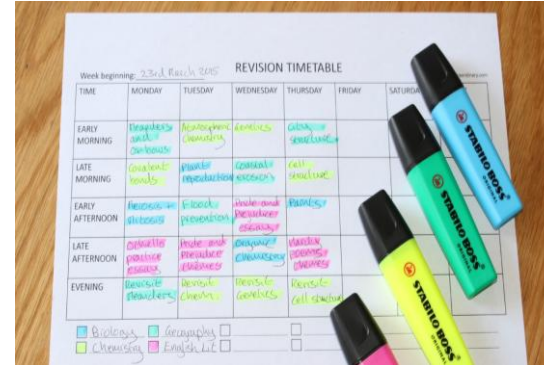 REVISION TIMETABLE
Week beginning: 23rd March 2015
TIME MONDAY TUESDAY WEDNESDAY THURSDAY FRIDAY SATURDA
EARLY MORNING
Meanders and
Atmospheric chemistry
Genetics
structure
LATE MORNING
Covalent bonds
Plant reproduction
Coastal erosion
Cell structure
EARLY AFTERNOON
Meiosis + mitosis
Flood prevention
Pride and Prejudice essay
Plants
LATE AFTERNOON
Othello practice essay
Pride and Prejudice themes
Organic Chemistry
poems themes
EVENING
Revisit Meanders
Revisit Chem.
Revisit Genetics
Revisit Cell structure
Biology Geography
Chemistry English Lit
STABILO BOSS
ORIGINAL
STABILO BOSS
ORIGINAL
STABILO BOSS
ORIGINAL